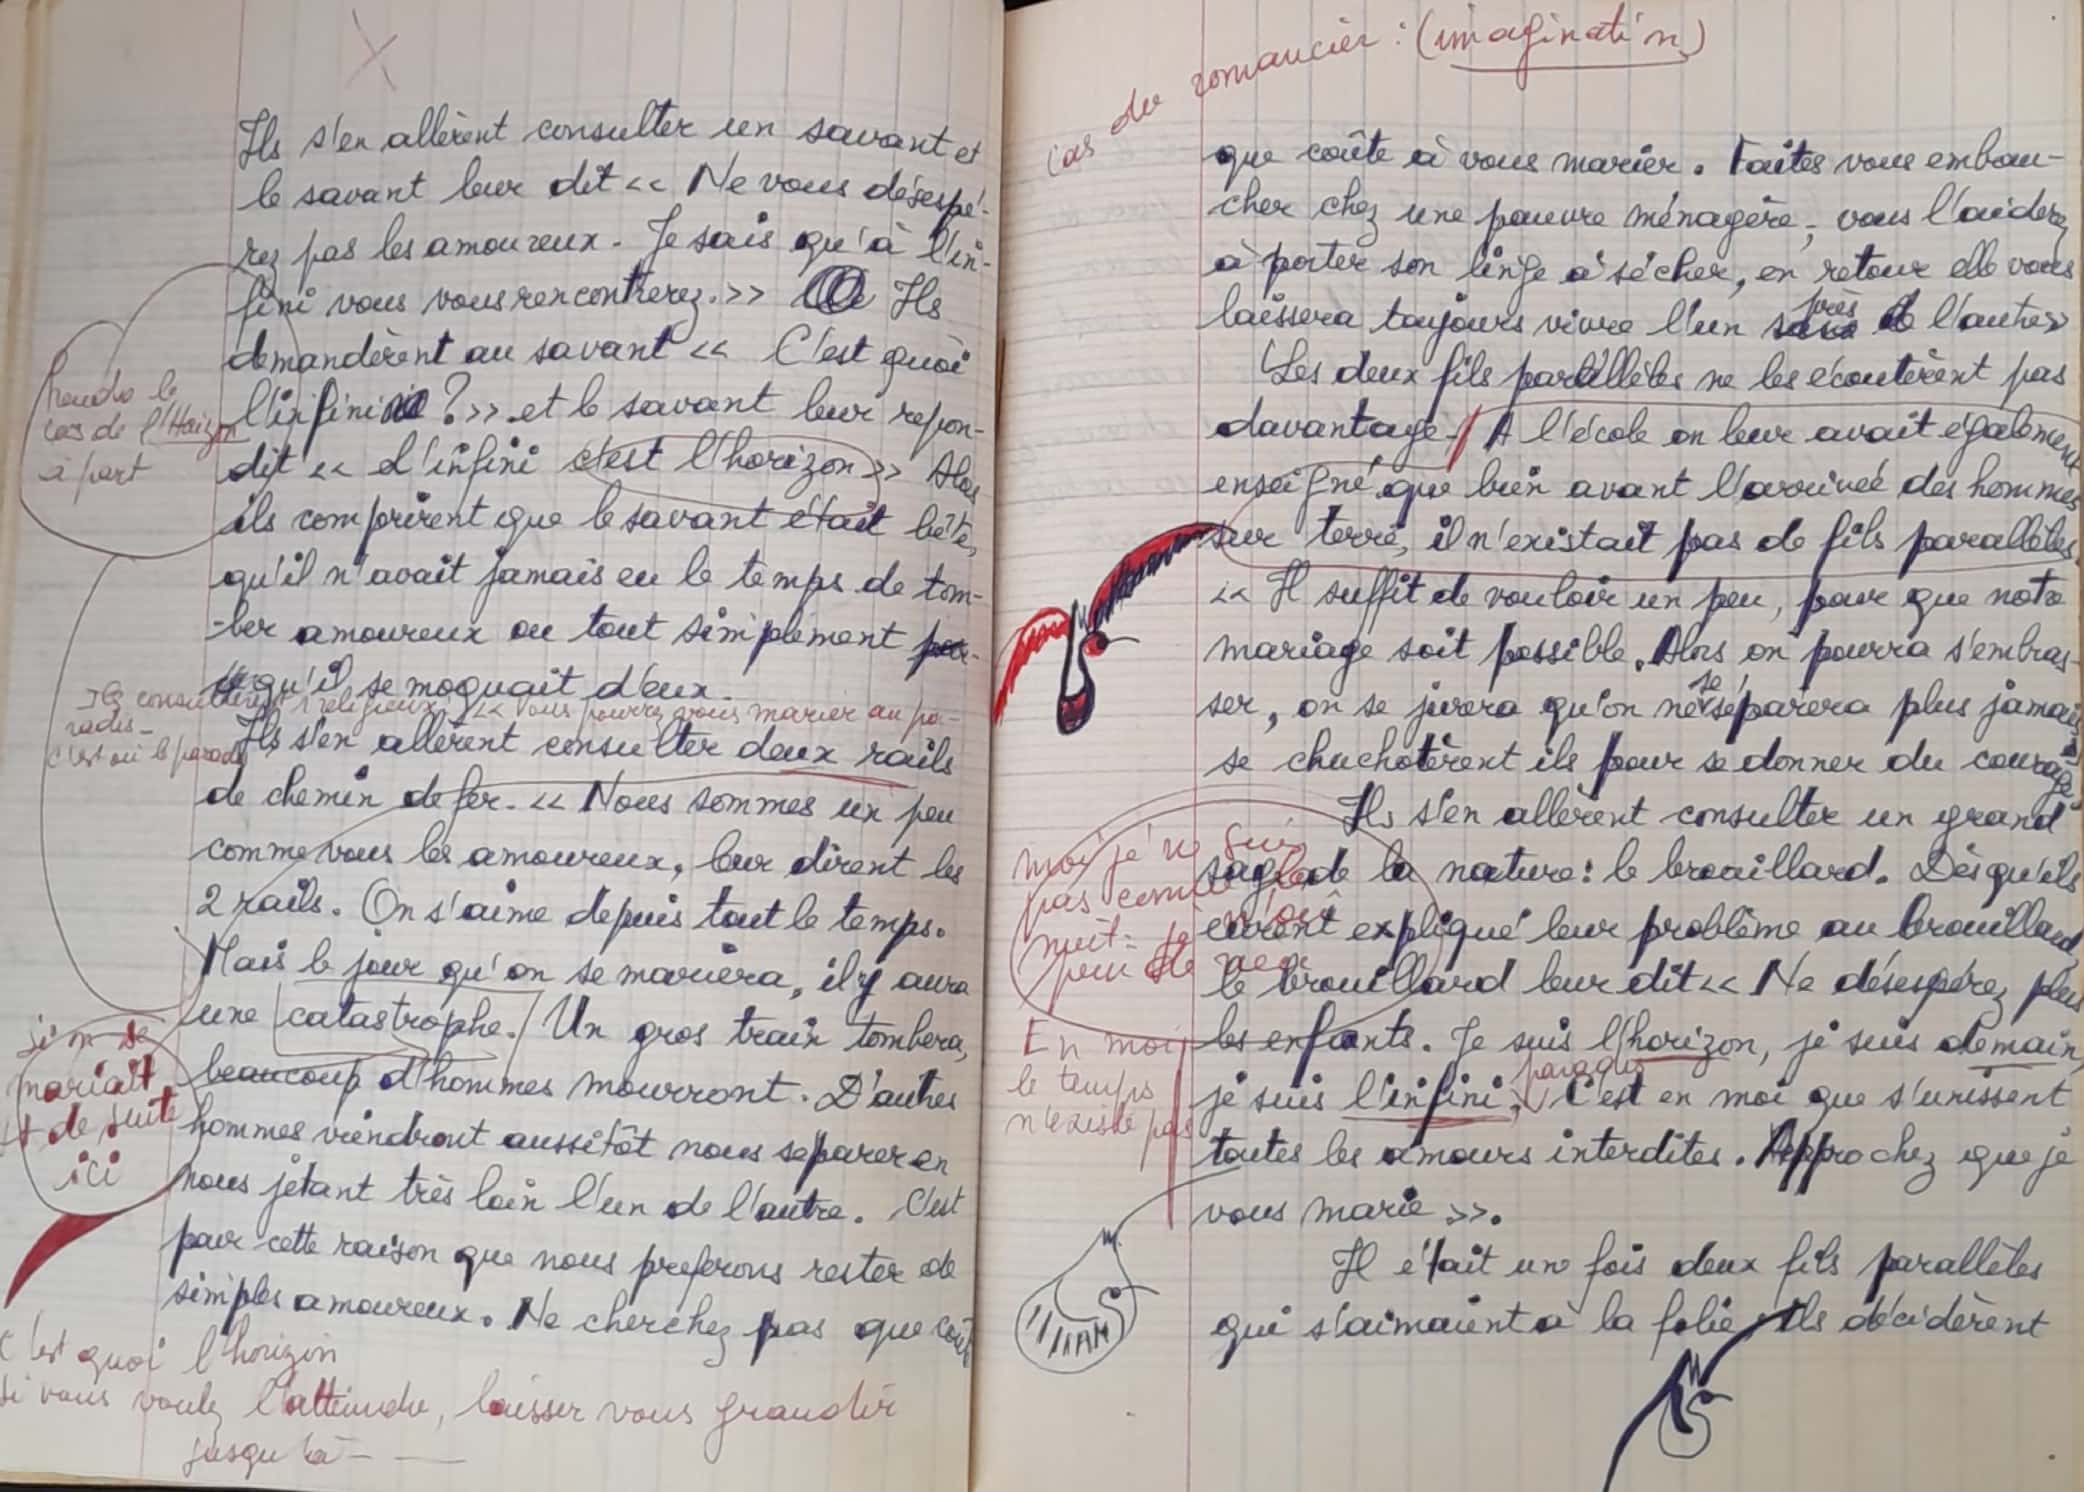 Ils s'en allèrent consulter un savant et
le savant leur dit << Ne vous désespé-
rez pas les amoureux. Je sais qu'à l'in-
fini vous vous rencontrerez. >> Ils
demandèrent au savant << C'est quoi
l'infini ? >> et le savant leur repon-
dit << L'infini c'est l'horizon >> Alors
ils comprirent que le savant était bête,
qu'il n'avait jamais eu le temps de tom-
-ber amoureux ou tout simplement
qu'il se moquait d'eux.
Ils s'en allèrent consulter deux rails
de chemin de fer. << Nous sommes un peu
comme vous les amoureux, leur dirent les
2 rails. On s'aime depuis tout le temps.
Mais le jour qu'on se mariera, il y aura
une catastrophe. Un gros train tombera,
beaucoup d'hommes mourront. D'autres
hommes viendront aussitôt nous séparer en
nous jetant très loin l'un de l'autre. C'est
pour cette raison que nous preferons rester de
simples amoureux. Ne cherchez pas que coûte
X
Prendre le
cas de l'Horizon
à part
Ils consultèrent 1 religieux : << vous pourrez vous marier au pa-
radis -
C'est où le paradis
si on se
mariait
t de suite
ici
C'est quoi l'horizon
Si vous voulez l'atteindre, laisser vous grandir
jusqu'là - —
Cas du romancier : (imagination)
que coûte à vous marier. Faites vous embau-
cher chez une pauvre ménagère, vous l'aiderez
à porter son linge à sécher, en retour elle vous
laissera toujours vivre l'un près de l'autre >>
Les deux fils parallèles ne les écoutèrent pas
davantage. A l'école on leur avait également
enseigné que bien avant l'arrivée des hommes
sur terre, il n'existait pas de fils parallèles.
<< Il suffit de vouloir un peu, pour que notre
mariage soit possible. Alors on pourra s'embras-
ser, on se jurera qu'on ne se séparera plus jamais >>
se chuchotèrent ils pour se donner du courage
Ils s'en allèrent consulter un grand
sage de la nature : le brouillard. Dès qu'ils
eurent expliqué leur problème au brouillard,
le brouillard leur dit << Ne désespérez plus
les enfants. Je suis l'horizon, je suis demain,
paradis
je suis l'infini, C'est en moi que s'unissent
toutes les amours interdites. Approchez que je
vous marie >>.
Il était une fois deux fils parallèles
qui s'aimaient à la folie. Ils décidèrent
moi je ne suis
pas comme la
nuit - je n'ai
peur de
En moi
le temps
n'existe pas